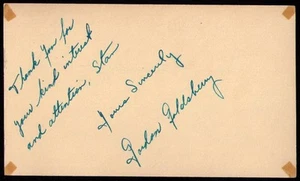 Thank You for
your kind interest
and attention, Stan
Yours Sincerely
Gordon Goldsberry